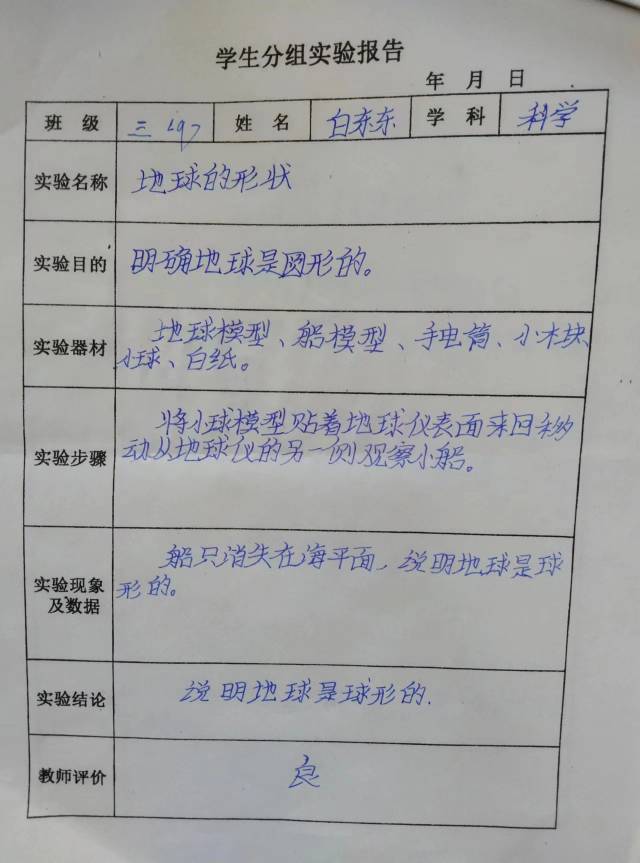 学生分组实验报告
年 月 日
班 级 三 姓 名 白东东 学 科 科学
实验名称 地球的形状
实验目的 明确地球是圆形的。
实验器材 地球模型、船模型、手电筒、小木块
小球、白纸。
实验步骤 将小球模型贴着地球仪表面来回移
动从地球仪的另一侧观察小船。
实验现象 船只消失在海平面,说明地球是球
及数据 形的。
实验结论 说明地球是球形的.
教师评价 良